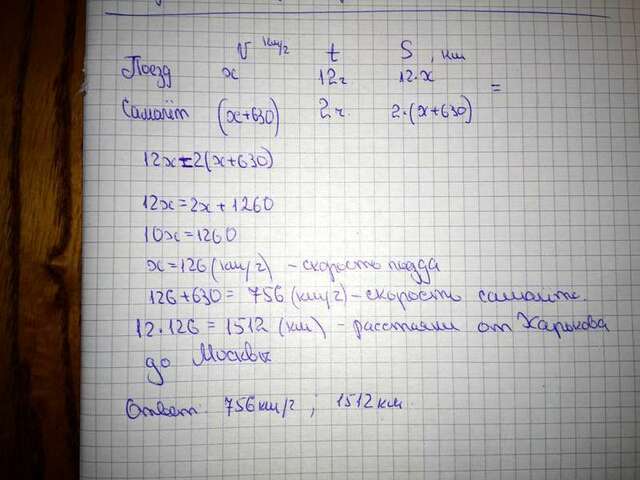 V км/г t S, км
Поезд x 12г 12·x
Самолёт (x+630) 2ч. 2·(x+630) =
12x=2(x+630)
12x=2x+1260
10x=1260
x=126 (км/г) - скорость поезда
126+630=756 (км/г) - скорость самолёта.
12·126=1512 (км) - расстояни от Харькова
до Москвы
Ответ: 756 км/г; 1512 км.